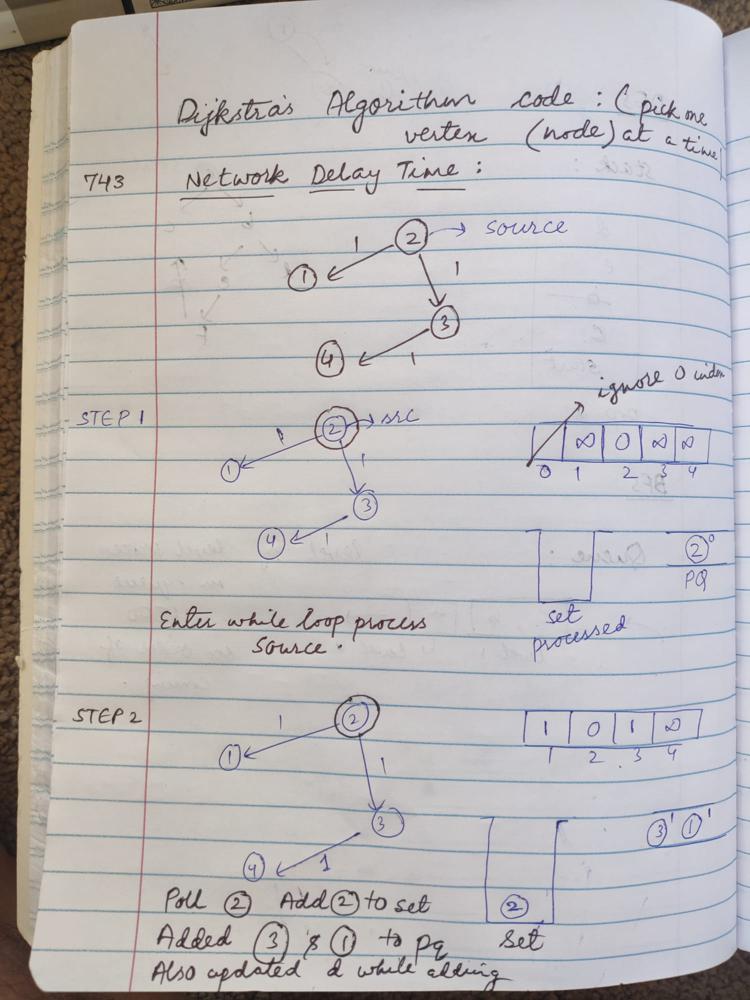 Dijkstra's Algorithm code : ( pick one
vertex (node) at a time)
743 Network Delay Time :
2 → source
1 1
1
3
4 1
ignore 0 index
STEP 1 2 → src
1 1
∞ 0 ∞ ∞
0 1 2 3 4
1
3
4 1
2 0
PQ
set
processed
Enter while loop process
source .
STEP 2 2
1 1
1 0 1 ∞
1 2 3 4
1
3
3 1 1 1
4 1
Poll 2 Add 2 to set
2
Added 3 & 1 to pq
Set
Also updated d while adding